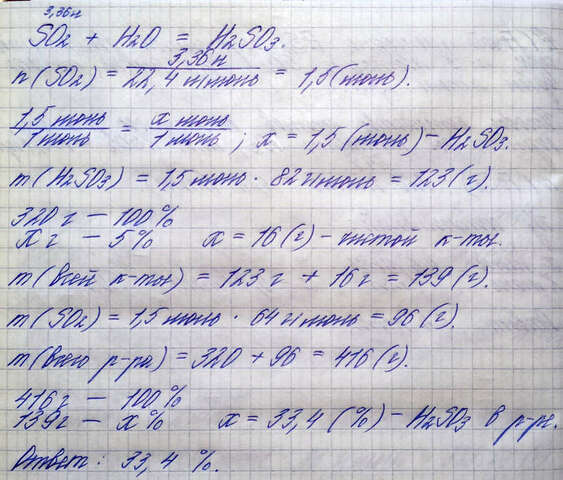 3,36л
SO2 + H2O = H2SO3.
n(SO2) = 3,36л / 22,4 л/моль = 1,5(моль).
1,5 моль / 1 моль = x моль / 1 моль ; x = 1,5 (моль) – H2SO3.
m(H2SO3) = 1,5 моль · 82 г/моль = 123(г).
320 г – 100%
X г – 5% x = 16(г) – чистой к-ты.
m(всей к-ты) = 123 г + 16 г = 139(г).
m(SO2) = 1,5 моль · 64 г/моль = 96(г).
m(всего р-ра) = 320 + 96 = 416(г).
416 г – 100%
139 г – x% x = 33,4 (%) – H2SO3 в р-ре.
Ответ: 33,4 %.